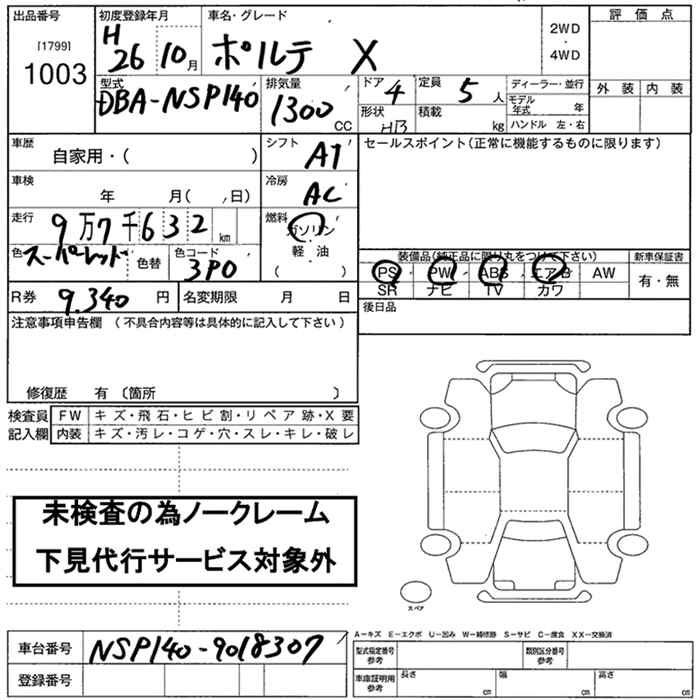 出品番号 初度登録年月 車名・グレード 評価点
[1799] 1003 H 26 10月 ポルテ X 2WD・4WD
型式 排気量 ドア 定員 ディーラー・並行 外装 内装
DBA-NSP140 1300 CC 4 5人 モデル年式 年
形状 HB 積載 kg ハンドル 左・右
車歴 シフト セールスポイント(正常に機能するものに限ります)
自家用・( ) AT
車検 冷房
年 月( , 日) AC
走行 燃料
9万7千632 km ガソリン
色 スーパーレッド 色替 色コード 3P0 軽油 ( )
装備品(純正品に限り丸をつけて下さい) 新車保証書
PS PW ABS エアB AW 有・無
SR ナビ TV カワ
R券 9,340 円 名変期限 月 日 後日品
注意事項申告欄 (不具合内容等は具体的に記入して下さい)
修復歴 有 〔箇所 〕
検査員 FW キズ・飛石・ヒビ割・リペア跡・X要
記入欄 内装 キズ・汚レ・コゲ・穴・スレ・キレ・破レ
未検査の為ノークレーム
下見代行サービス対象外
スペア
A-キズ E-エクボ U-凹み W-補修跡 S-サビ C-腐食 XX-交換済
車台番号 NSP140-9018307 型式指定番号 参考 類別区分番号 参考
登録番号 車庫証明用 参考 長さ cm 幅 cm 高さ cm